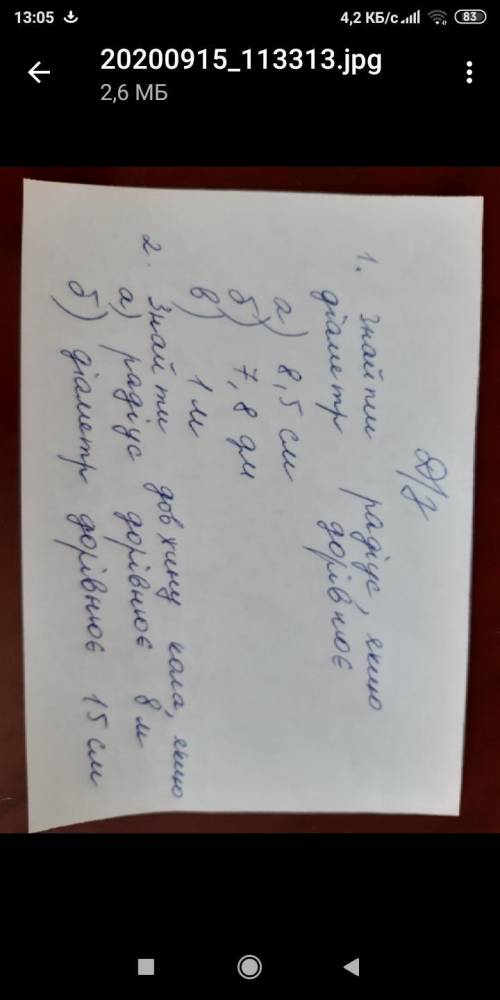 13:05 4,2 КБ/с 83
20200915_113313.jpg
2,6 МБ
Д/з
1. Знайти радіус, якщо
діаметр дорівнює
а) 8,5 см
б) 7,8 дм
в) 1 м
2. Знайти довжину кола, якщо
а) радіус дорівнює 8 м
б) діаметр дорівнює 15 см